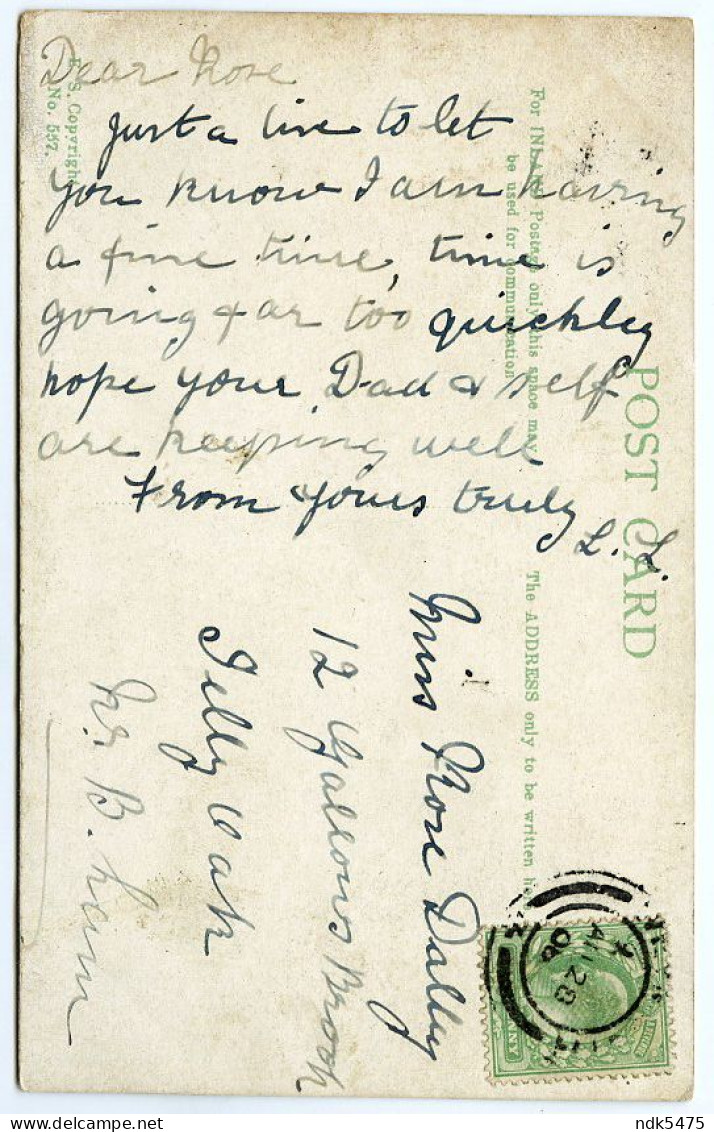 Dear Rose
Just a line to let
you know I am having
a fine time, time is
going far too quickley
hope your Dad & self
are keeping well
From yours truly
L. L.
Miss Rose Dalley
12 Gallows Brook
Selly Oak
Nr. B. ham
POST CARD
For INLAND Postage only this space may
be used for communication
The ADDRESS only to be written
E. S. Copyright
No. 557.
28
06
ndk5475